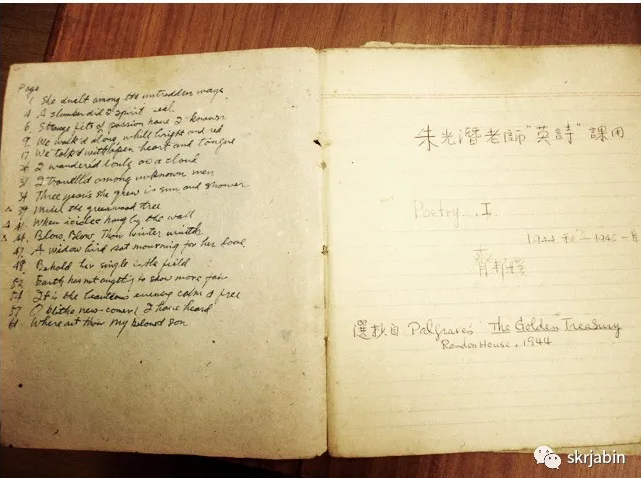 Page
1 She dwelt among the untrodden ways
4. A slumber did I spirit seal
6. Strange fits of passion have I known
9. We walk'd along, while bright and red
17 We talk'd with open heart and tongue
I wandered lonely as a cloud
31 I travell'd among unknown men
34 Three years she grew in sun and shower
39 Under the greenwood tree
41. When icicles hang by the wall
44. Blow, Blow, Thou winter winds
47. A widow bird sat mourning for her love
48. Behold her single in the field
Earth has not anything to show more fair
54 It is the beauteous evening calm & free
57 O blithe new-comer! I have heard
61 Where art thou my beloved son
朱光潛老師"英詩"課用
Poetry....I.
1944 秋—1945-
齊邦媛
選抄自 Palgrave's The Golden Treasury
Random House, 1944
skrjabin